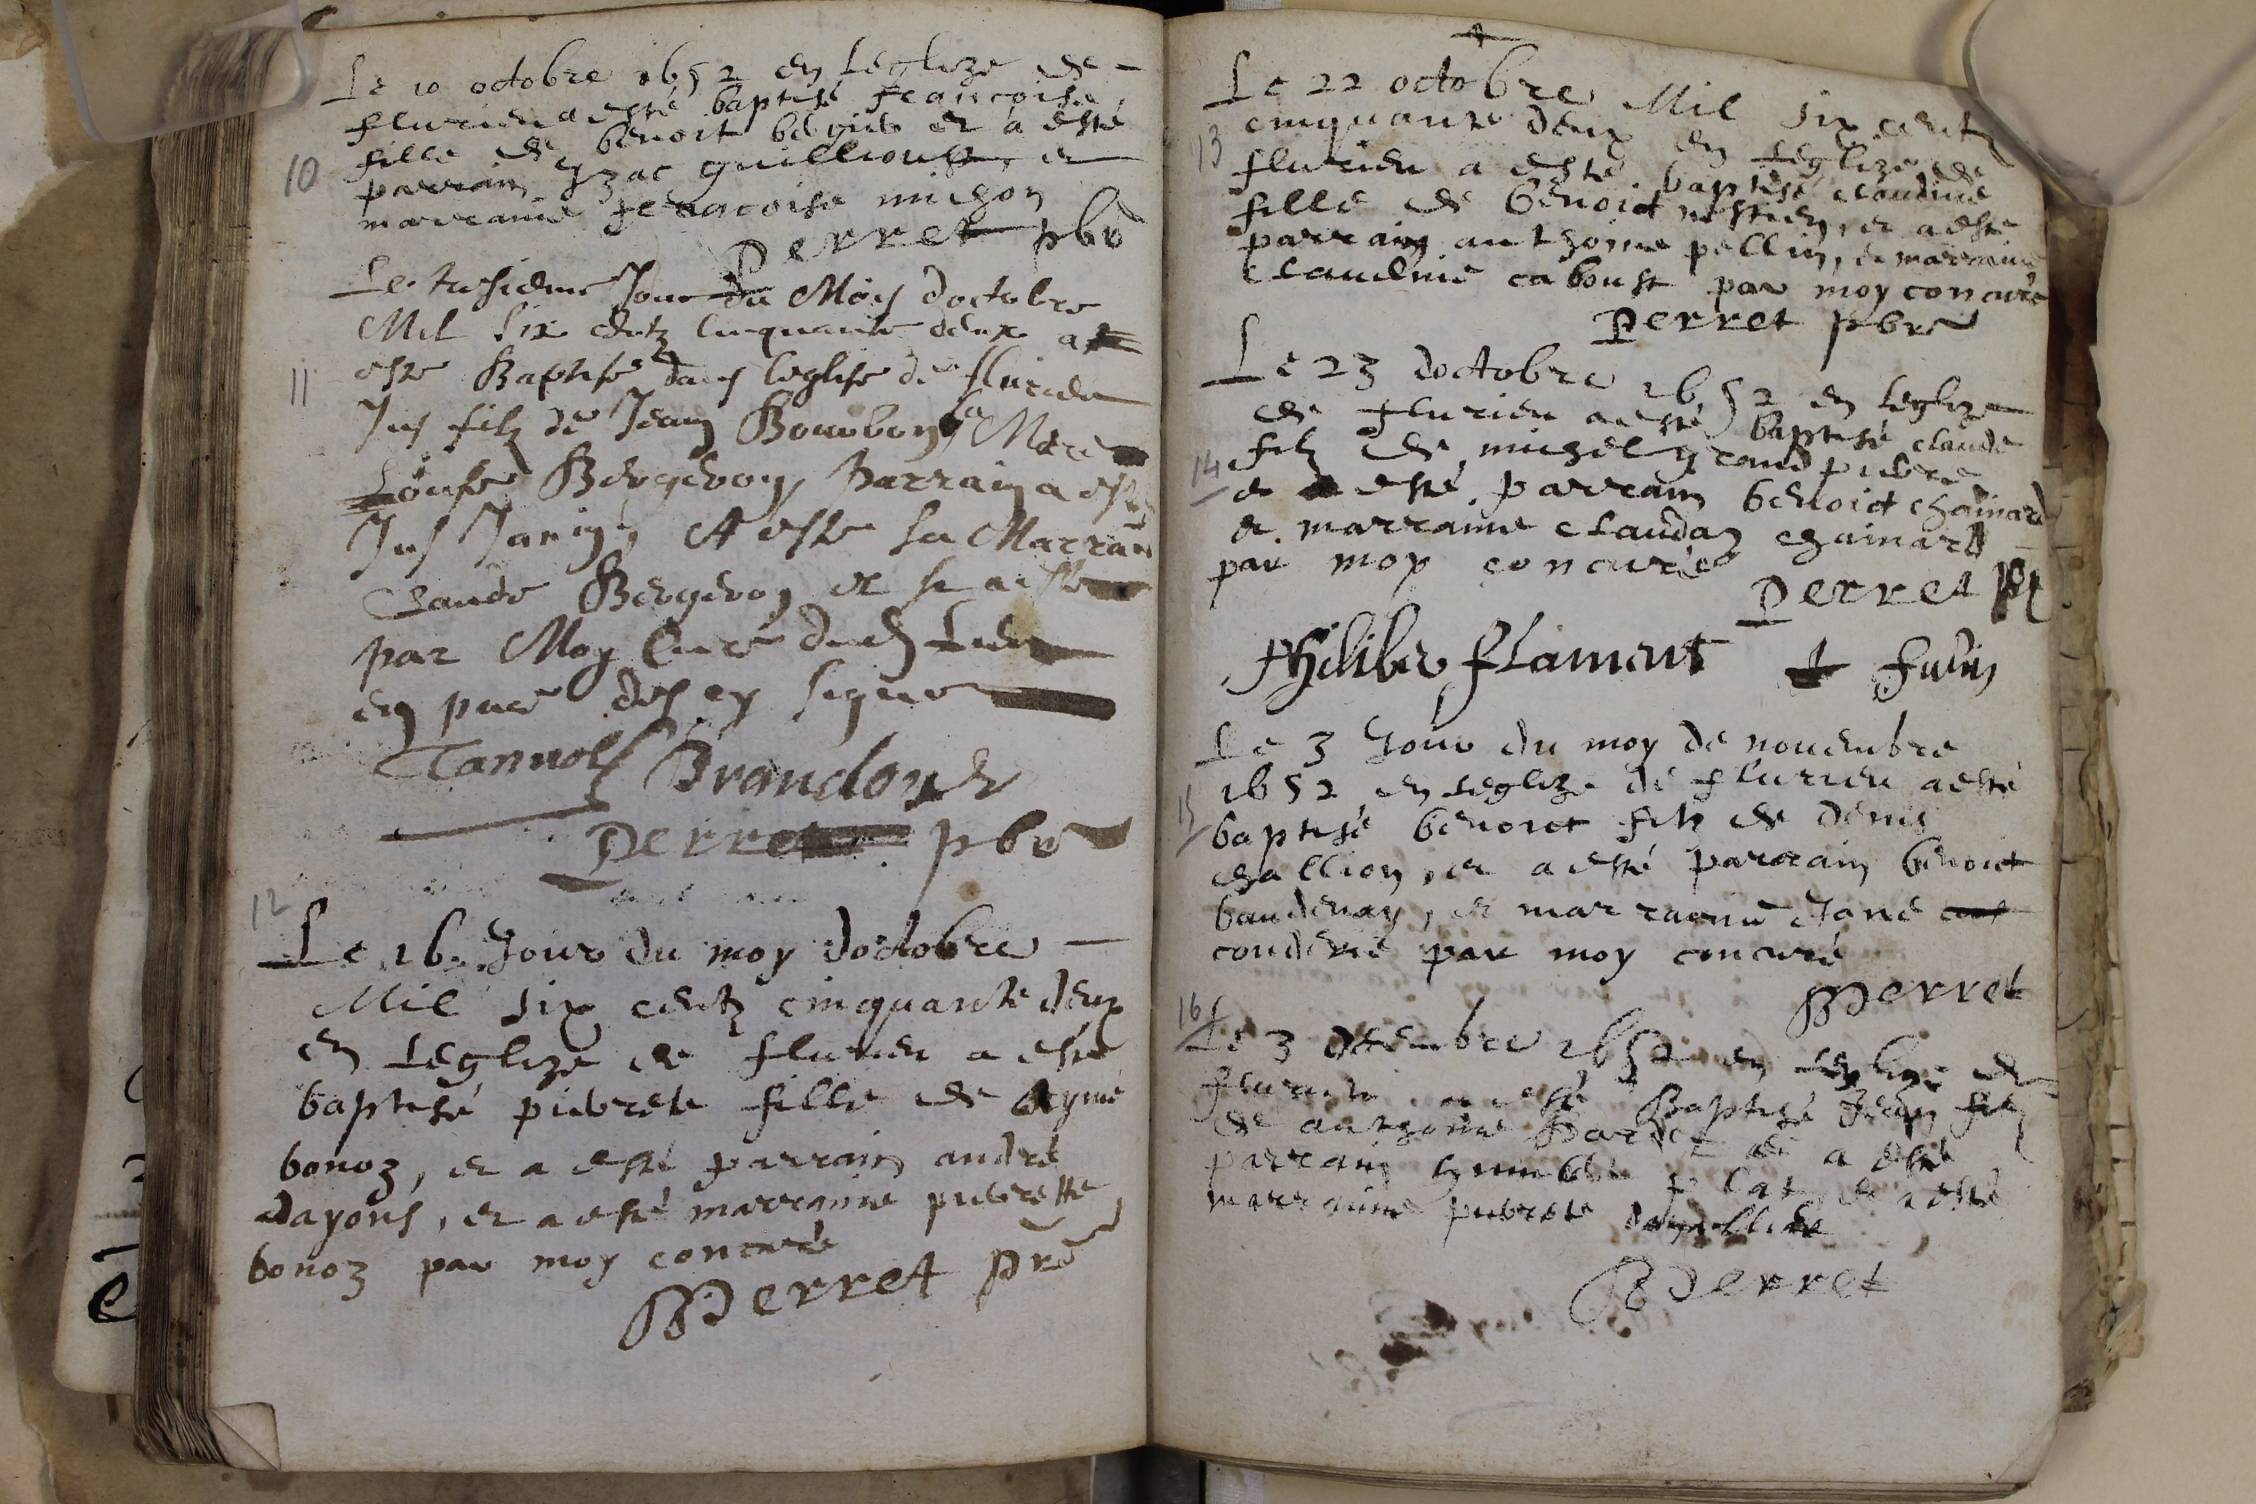 Le 10 octobre 1652 en leglize de
flurieu a esté baptisé francoise
fille de benoit et a esté
10
parrain yzac guillioust, et
marraine francoise michon
Perret pbr
Le Jour du Moys doctobre
Mil Six centz Cinquante deux a
11
este Baptisé dans leglise de flurieu
filz de Jean Bourbon, sa Mere
Louise Bergeron, Parrain a este
Et este sa Marraine
Claude Bergeron et
par Moy Curé
en signe
Tannols Brandon
Perret pbr
12
Le 16. Jour du moy doctobre
Mil six centz cinquante deux
en leglize de flurieu a esté
baptisé pierrete fille de Aymé
bonoz, et a esté parrain andré
dayons, et a esté marraine pierrette
bonoz par moy concuré
Perret pre
Le 22 octobre Mil six centz
cinquante deux en leglize de
13
flurieu a esté baptisé claudine
fille de benoict et a esté
parrain anthoine pellin, et marraine
claudine caboust par moy concuré
Perret pbre
Le 23 doctobre 1652 en leglize
de flurieu a esté baptisé claude
filz de michel grand pierre
14
et a esté parrain benoict chainard
et marraine claudaz chainard
par moy concuré
Perret
Philiber flament
Le 3 Jour du moy de novembre
1652 en leglize de flurieu a esté
15
baptisé benoict filz de denis
challion, et a esté parrain benoict
baudenay, et marraine
couderie par moy concuré
Perret
16
Le 3 decembre 1652 en leglize de
a esté Baptisé Jean filz
de anthoine et a esté
parrain plat, et a esté
marraine pierrete
Perret